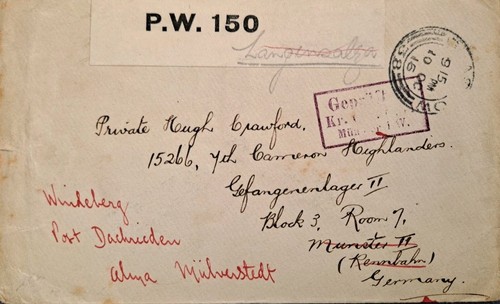 P.W. 150
Langensalza
9 15 PM
10 OC
16
Private Hugh Crawford,
15266, 7th Cameron Highlanders.
Gefangenenlager II
Block 3, Room 7,
Munster II
(Rennbahn)
Germany.
Windeberg
Post Dachrieden